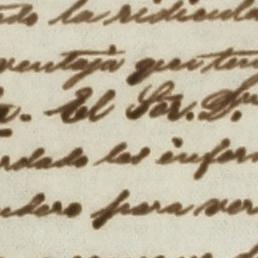 la ridicula
ventaja que ten
El Sor. Dr
rdado les infor
dero para ver